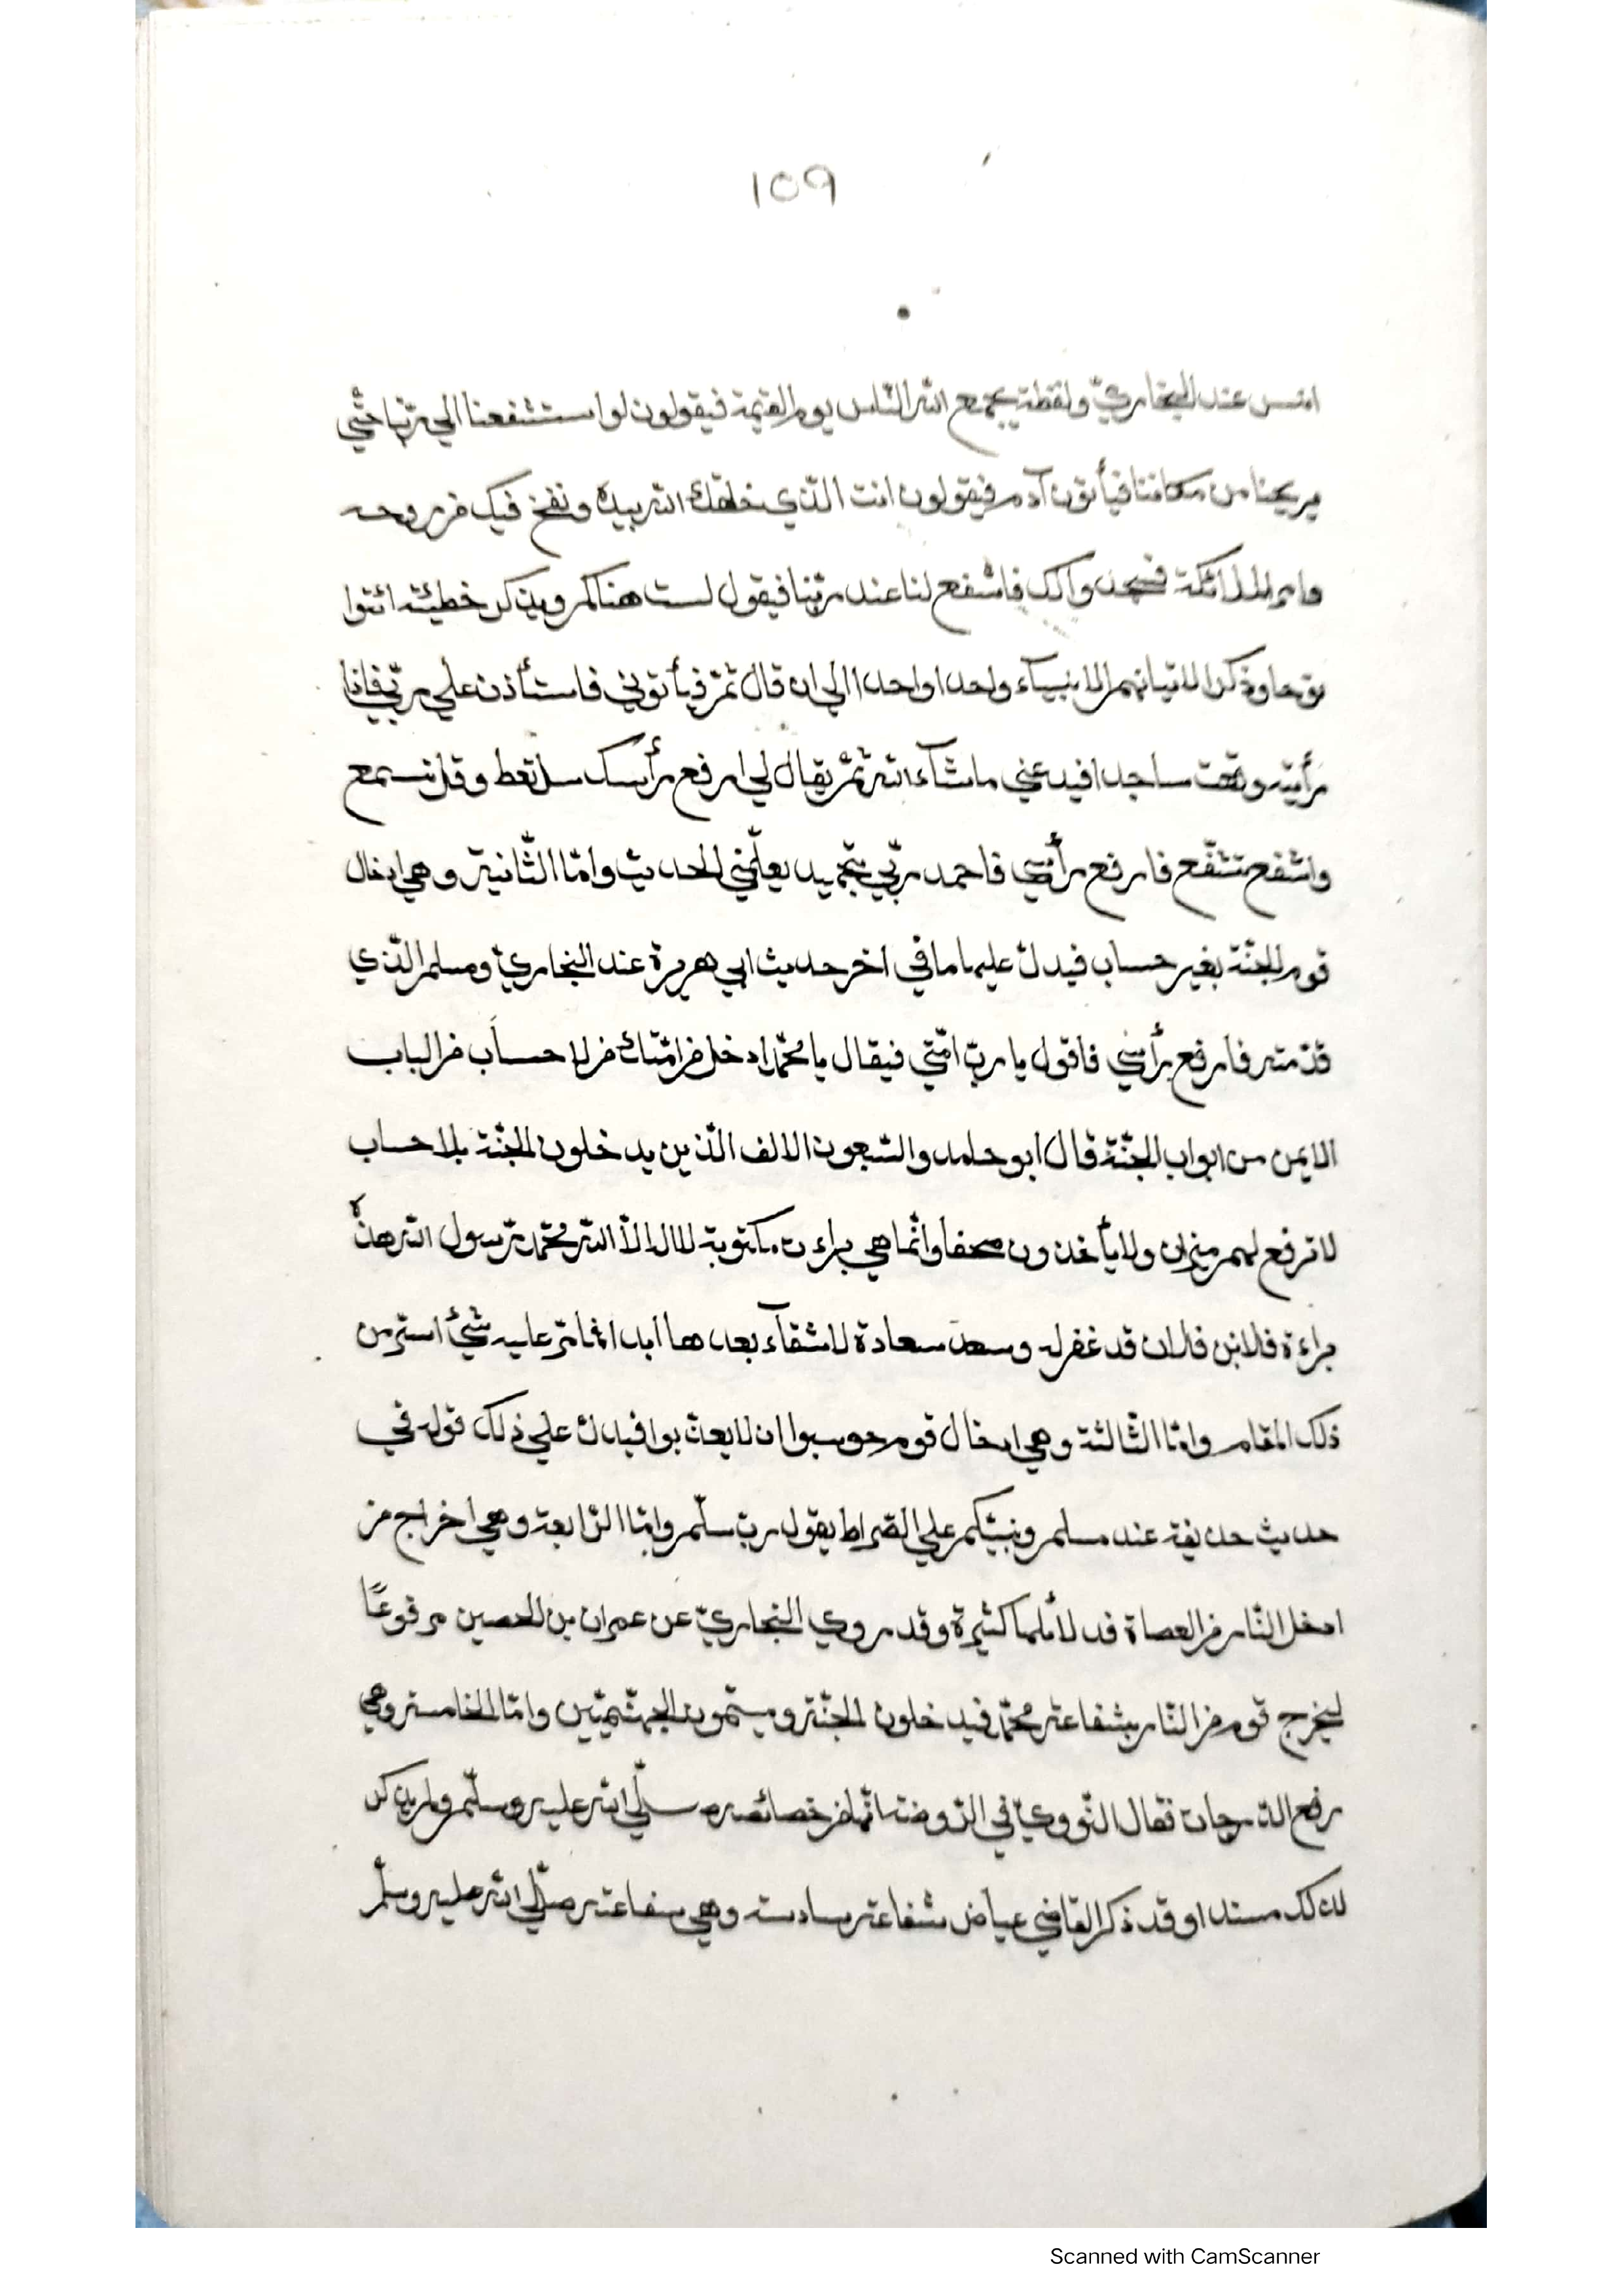 ١٥٩
انس عند البخاريّ ولفظه يجمع الله النّاس يوم القيمة فيقولون لو استشفعنا الي ربّنا حتّي
يريحنا من مكاننا فيأتون آدم فيقولون انت الّذي خلقك الله بيده ونفخ فيك من روحه
وامر الملائكة فسجدوا لك فاشفع لنا عند ربّنا فيقول لست هناكم ويذكر خطيئته ائتوا
نوحا وذكر اتيانهم الانبيآء واحدا واحدا الي ان قال ثمّ فيأتوني فاستأذن علي ربّي فاذا
رأيته وقعت ساجدا فيدعني ما شآء الله ثمّ يقال لي ارفع رأسك سل تعط وقل تسمع
واشفع تشفّع فارفع رأسي فاحمد ربّي بتحميد يعلّمني الحديث وامّا الثّانية وهي ادخال
قوم الجنّة بغير حساب فيدلّ عليها ما في اخر حديث ابي هريرة عند البخاريّ ومسلم الّذي
قدّمته فارفع رأسي فاقول يا ربّ امّتي فيقال يا محمّد ادخل من امّتك من لا حساب من الباب
الايمن من ابواب الجنّة قال ابو حامد والسّبعون الالف الّذين يدخلون الجنّة بلا حساب
لا ترفع لهم ميزان ولا يأخذون صحفا وانّما هي براءت مكتوبة لا اله الاّ الله محمّد رسول الله هذه
براءة فلان بن فلان قد غفر له وسعد سعادة لا شقآء بعدها ابدا فما مرّ عليه شئ اسرّ من
ذلك المقام وامّا الثّالثة وهي ادخال قوم حوسبوا ان لا يعذّبوا فيدلّ علي ذلك قوله في
حديث حذيفة عند مسلم ونبيّكم علي الصّراط يقول ربّ سلّم وامّا الرّابعة وهي اخراج من
ادخل النّار من العصاة فدلائلها كثيرة وقد روي البخاريّ عن عمران بن الحصين مرفوعًا
ليخرج قوم من النّار بشفاعة محمّد فيدخلون الجنّة ويسمّون الجهنّميّين وامّا الخامسة وهي
رفع الدّرجات فقال النّوويّ في الرّوضة انّها من خصائصه صلّي الله عليه وسلّم ولم يذكر
لذلك مستندا وقد ذكر القاضي عياض شفاعة سادسة وهي شفاعته صلّي الله عليه وسلّم
Scanned with CamScanner